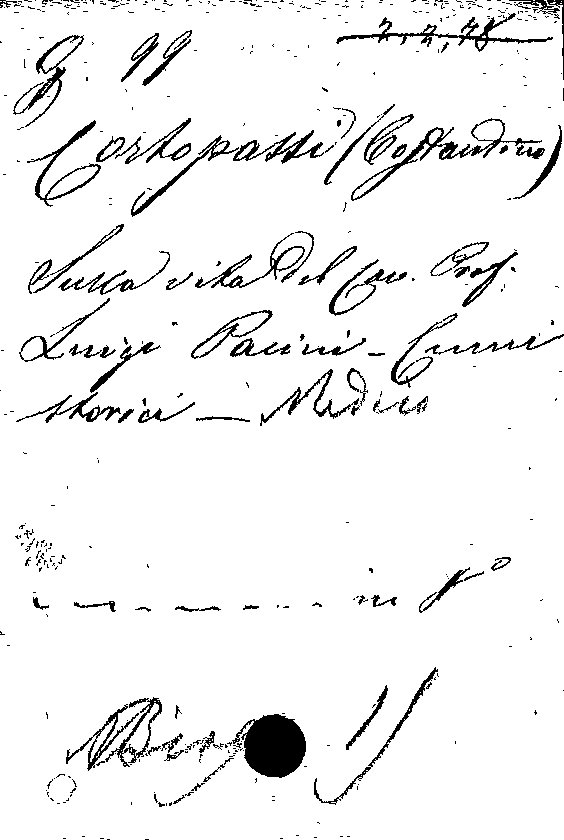 2, 2, 78
B. 99
Cortopassi (Costantino)
Sulla vita del Cav. Prof.
Luigi Pacini - Cenni
storici — Medico
in 8°